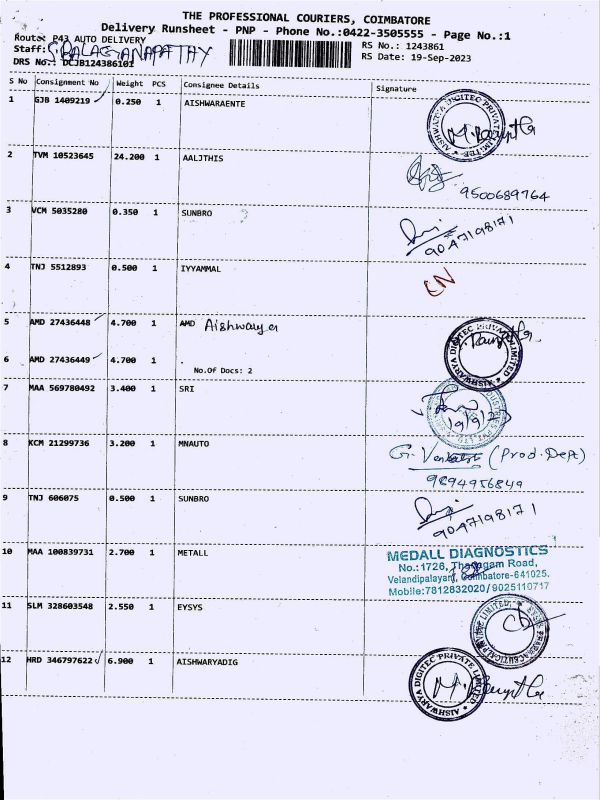 THE PROFESSIONAL COURIERS, COIMBATORE
Delivery Runsheet - PNP - Phone No.:0422-3505555 - Page No.:1
Route: P43 AUTO DELIVERY
RS No.: 1243861
Staff:
RS Date: 19-Sep-2023
DRS No.: DCJB124386101
S No Consignment No Weight PCS Consignee Details Signature
1 GJB 1409219 0.250 1 AISHWARAENTE
AISHWARYA DIGITEC PRIVATE LIMITED
2 TVM 10523645 24.200 1 AALJTHIS
9500689764
3 VCM 5035280 0.350 1 SUNBRO
9047198171
4 TNJ 5512893 0.500 1 IYYAMMAL
CN
5 AMD 27436448 4.700 1 AMD Aishwarya
AISHWARYA DIGITEC PRIVATE LIMITED
6 AMD 27436449 4.700 1
No.Of Docs: 2
7 MAA 569780492 3.400 1 SRI
19/9/23
8 KCM 21299736 3.200 1 MNAUTO
G. (Prod.Dept)
9894956849
9 TNJ 606075 0.500 1 SUNBRO
9047198171
10 MAA 100839731 2.700 1 METALL
MEDALL DIAGNOSTICS
No.:1726, Thadagam Road,
Velandipalayam, Coimbatore-641025.
Mobile:7812832020/9025110717
11 SLM 328603548 2.550 1 EYSYS
12 HRD 346797622 6.900 1 AISHWARYADIG
AISHWARYA DIGITEC PRIVATE LIMITED